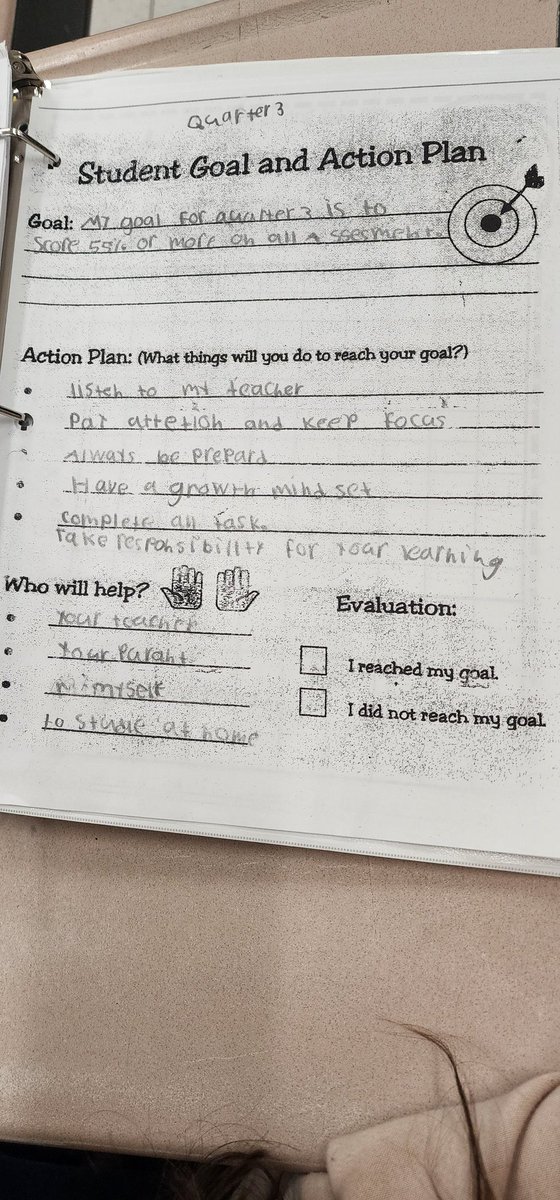 Quarter 3
Student Goal and Action Plan
Goal: My goal for quarter 3 is to
Score 55% or more on all Assesments.
Action Plan: (What things will you do to reach your goal?)
listen to my teacher
Pay attetion and keep focus
Always be prepard
Have a growth mind set
complete all task.
Take responsibility for your learning
Who will help?
Your teacher
Your Paraht
myself
to studie at home
Evaluation:
I reached my goal.
I did not reach my goal.